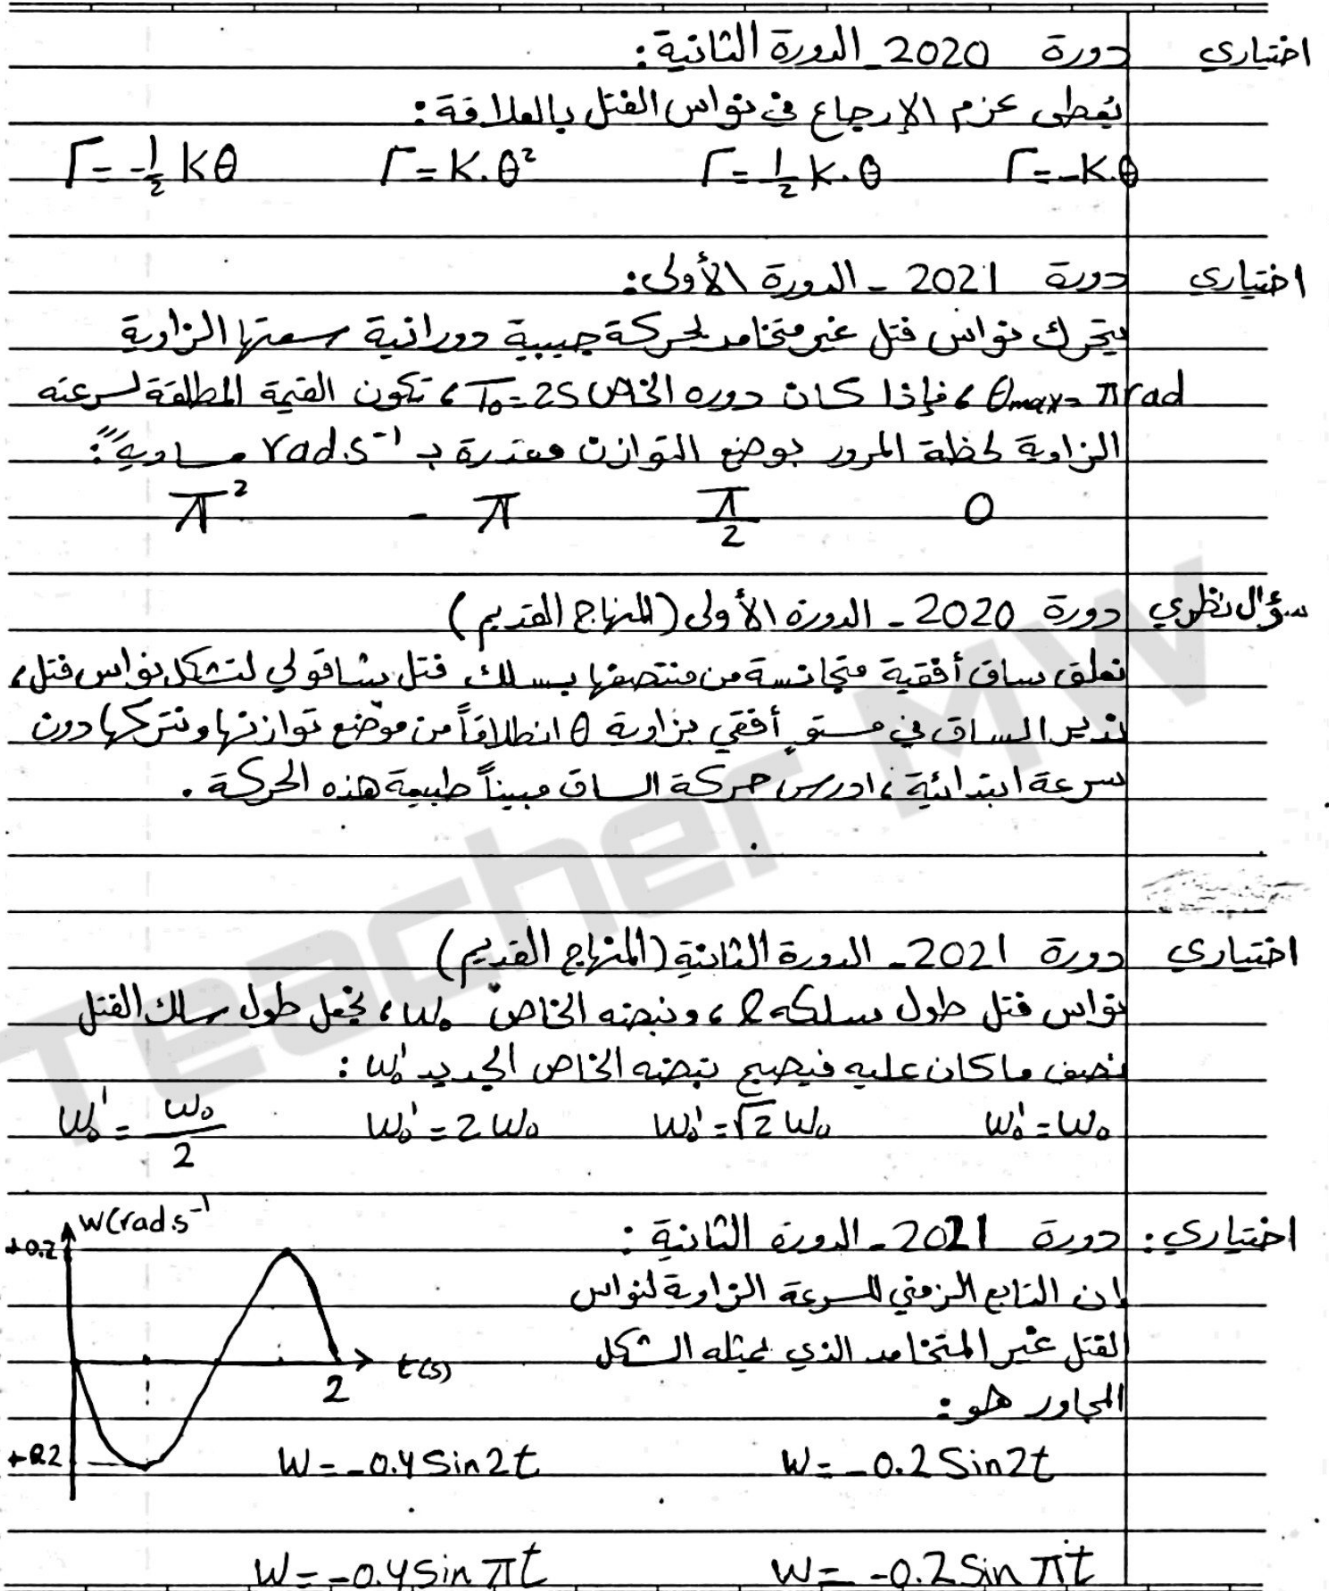 اختياري دورة 2020 ـ الدورة الثانية:
يُعطى عزم الإرجاع في نواس الفتل بالعلاقة:
Γ=-K.θ Γ=½K.θ Γ=K.θ² Γ=-½Kθ
اختياري دورة 2021 ـ الدورة الأولى:
يتحرك نواس فتل غير متخامد بحركة جيبية دورانية سعتها الزاوية
θmax=π rad، فإذا كان دوره الخاص T₀=2S، تكون القيمة المطلقة لسرعته
الزاوية لحظة المرور بوضع التوازن مقدرة بـ rad.s⁻¹ مساوية:
0 π/2 π π²
سؤال نظري دورة 2020 ـ الدورة الأولى (المنهاج القديم)
نعلق ساق أفقية متجانسة من منتصفها بسلك فتل شاقولي لتشكل نواس فتل،
ندير الساق في مستوٍ أفقي بزاوية θ انطلاقاً من موضع توازنها ونتركها دون
سرعة ابتدائية، ادرس حركة الساق مبيناً طبيعة هذه الحركة.
Teacher MW
اختياري دورة 2021 ـ الدورة الثانية (المنهاج القديم)
نواس فتل طول سلكه ℓ، ونبضه الخاص ω₀، نجعل طول سلك الفتل
نصف ما كان عليه فيصبح نبضه الخاص الجديد ω₀':
ω₀'=ω₀ ω₀'=√2 ω₀ ω₀'=2ω₀ ω₀'=ω₀/2
اختياري: دورة 2021 ـ الدورة الثانية:
إن التابع الزمني للسرعة الزاوية لنواس
الفتل غير المتخامد الذي يمثله الشكل
المجاور هو:
w(rad s⁻¹
+0.2
t(s)
2
+0.2
w=-0.2 Sin2t w=-0.4 Sin2t
w=-0.2 Sin πt w=-0.4 Sin πt